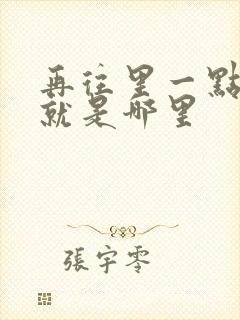 再往里一點
就是哪里
張宇零